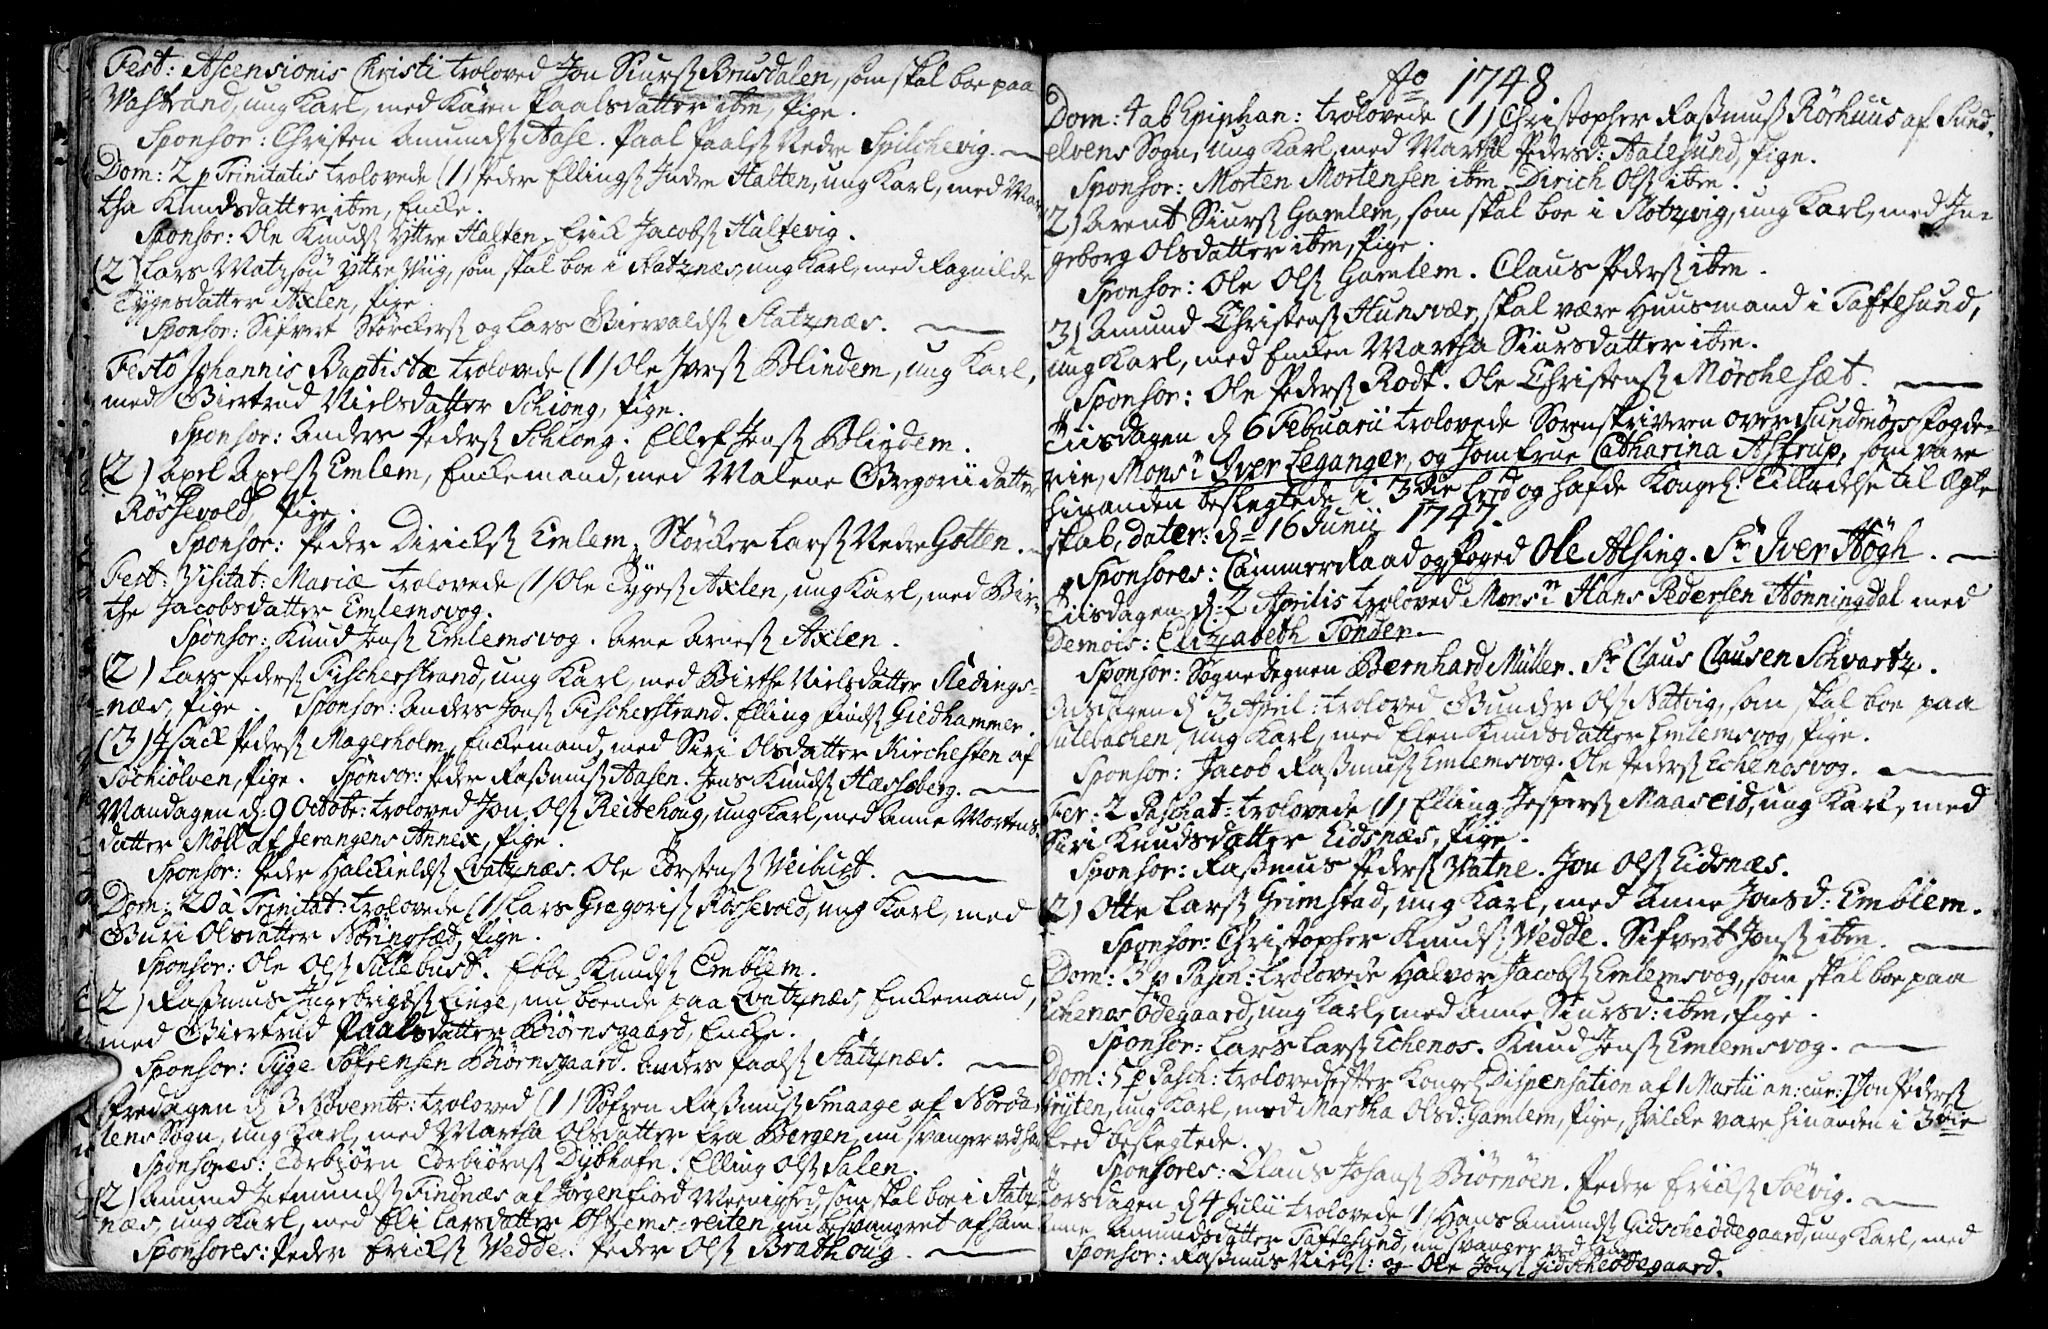 Fest: Ascensionis Christi troloved Jon Siursß Brusdalen, som skal boe paa
Vastrand, ung Karl, med Karen Paalsdatter ibm, Pige.
Sponsor: Christen Amundsß Aase. Paal Paalsß Nedre Spilchevig.
Dom: 2 p Trinitatis trolovede (1) Peder Ellingsß Indre Halten, ung Karl, med Mar
tha Knudsdatter ibm, Encke.
Sponsor: Ole Knudsß Yttre Halten. Erick Jacobsß Haltevig.
(2) Lars Matzsøn Yttre Viig, som skal boe i Slatznæs, ung Karl, med Ragnilde
Tygesdatter Axlen, Pige.
Sponsor: Sifvert Störckersß og Lars Biervaldsß Slatznæs.
Festo Johannis Baptistæ trolovede (1) Ole Iversß Blindem, ung Karl,
med Giertrud Nielsdatter Schiong, Pige.
Sponsor: Anders Pedersß Schiong. Ellef Jensß Blindem.
(2) Axel Axelsß Emlem, Enckemand, med Malene Gregorii datter
Røssevold, Pige.
Sponsor: Peder Dirichsß Emlem, Störcker Larsß Nedre Gotten.
Fest: Visitat: Mariæ trolovede (1) Ole Tygesß Axlen, ung Karl, med Bir-
the Jacobsdatter Emlemsvog.
Sponsor: Knud Jensß Emlemsvog. Arne Arnesß Axlen.
(2) Lars Pedersß Fischerstrand, ung Karl, med Birthe Nielsdatter Sledings-
=næs, Pige. Sponsor: Anders Jonsß Fischerstrand. Elling Findsß Giedhammer.
(3) Isack Pedersß Magerholm, Enckemand, med Siri Olsdatter Kirchesten af
Söchiölven, Pige. Sponsor: Peder Raßmusß Aasen. Jens Knudsß Hæsseberg.
Mandagen d: 9 Octobr: troloved Jon Olsß Reitehoug, ung Karl, med Anne Mortens
datter Møll af Jerangens Annex, Pige.
Sponsor: Peder Halckieldsß Qvatznæs. Ole Torstensß Veibust.
Dom: 20 à Trinitat: trolovede (1) Lars Gregorisß Røssevold, ung Karl, med
Guri Olsdatter Nöringsæd, Pige.
Sponsor: Ole Olsß Sulebust. Ebbe Knudsß Emblem.
(2) Raßmus Ingebrigdsß Linge, nu boende paa Qvatznæs, Enckemand,
med Giertrud Paalsdatter Biørnsgaard, Encke.
Sponsor: Tyge Söfrensen Biørnsgaard. Anders Paalsß Slatznæs.
Fredagen d 3 Novembr: troloved (1) Söfren Raßmusß Smaage af Norda-
lens Sogn, ung Karl, med Martha Olsdatter fra Bergen, nu svanger ved ham
Sponsores: Torbjørn Torbiørnsß Dybhafn. Elling Olsß Salen.
(2) Amund Jetmundsß Findnæs af Jörgenfiord Menighed, som skal boe i Slatz
næs, ung Karl, med Eli Larsdatter Olstems=reiten, nu besvangret af ham.
Sponsores: Peder Ericksß Vedde. Peder Olsß Brathoug.
Ao 1748
Dom: 4 ab Epiphan: trolovede (1) Christopher Raßmusß Rörhuus af Sund-
elvens Sogn, ung Karl, med Martha Pedersd: Aalesund, Pige.
Sponsor: Morten Mortensen ibm. Dirich Olsß ibm.
(2) Arent Siursß Gamlem, som skal boe i Slotzvig, ung Karl, med In-
geborg Olsdatter ibm, Pige.
Sponsor: Ole Olsß Gamlem. Claus Pedersß ibm.
3) Amund Christensß Hunsvær, skal være Huusmand i Taftesund,
ung Karl, med Encken Martha Siursdatter ibm.
Sponsor: Ole Pedersß Rodt. Ole Christensß Mörchesæt.
Tiisdagen d 6 Februarii trolovede Sorenskriveren over Sundmörs Fogde-
rie, Monsr Iver Leganger, og Jomfrue Catharina Astrup, som vare
hinanden beslegtede i 3die Leed og hafde Kongel: Tilladelse til Ægte
skab, dater: d 16 Junii 1747.
Sponsores: Cammerraad og Foged Ole Alsing. Sr Iver Høgh.
Tiisdagen d: 2 Aprilis troloved Monsr Hans Pedersen Honningdal med
Demois: Elizabeth Tönder.
Sponsor: Sognedegnen Bernhard Müller. Sr Claus Clausen Schvartz.
Onsdagen d 3 April: troloved Gunder Olsß Natvig, som skal boe paa
Sulebachen, ung Karl, med Elen Knudsdatter Emlemsvog, Pige.
Sponsor: Jacob Raßmusß Emlemsvog. Ole Pedersß Echenosvog.
Fer: 2 Paschat: trolovede (1) Elling Jespersß Maaseid, ung Karl, med
Siri Knudsdatter Eidsnæs, Pige.
Sponsor: Raßmus Pedersß Vatne. Jon Olsß Eidsnæs.
2) Otte Larsß Grimstad, ung Karl, med Anne Jonsd: Emblem.
Sponsor: Christopher Knudsß Vedde. Sifvert Jonsß ibm.
Dom: 3 p Pasch: trolovede Halvor Jacobsß Emlemsvog, som skal boe paa
Echenos Ödegaard, ung Karl, med Anne Siursd: ibm, Pige.
Sponsor: Lars Larsß Echenos. Knud Jensß Emlemsvog.
Dom: 5 p Pasch: trolovedes efter Kongel Dispensation af 1 Martii an: cur: Jon Pedersß
, ung Karl, med Martha Olsd: Gamlem, Pige, hvilcke vare hinanden i 3die
Leed beslegtede.
Sponsores: Claus Johansß Biørnöen. Peder Ericksß Söevig.
Torsdagen d 4 Julii trolovede (1) Hans Amundsß Gidscheödegaard, ung Karl, med
Anne Amundsdatter Taftesund, nu svanger ved ham.
Sponsor: Raßmus Nielsß: og Ole Jonsß Gidscheödegaard.